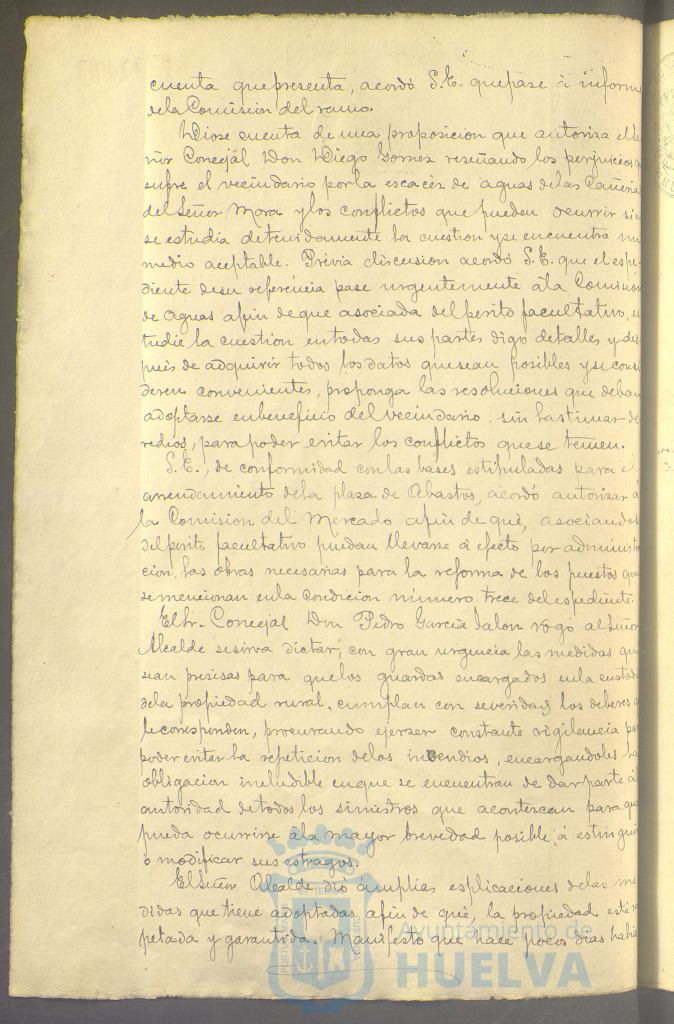 cuenta que presenta, acordó S.E. que pase á informe
de la Comision del ramo.
Diose cuenta de una proposicion que autoriza el Se
ñor Concejal Don Diego Gomez reseñando los perjuicios q
sufre el vecindario por la escacéz de aguas de las Cañeria
del Señor Mora y los conflictos que pueden ocurrir sin
se estudia detenidamente la cuestion y se encuentra un
medio aceptable. Prévia discusion acordó S.E. que el espe-
diente de su referencia pase urgentemente á la Comision
de aguas afin de que asociada del perito facultativo, es
tudie la cuestion en todas sus partes digo detalles y des
pues de adquirir todos los datos que sean posibles y se consi
deren convenientes, proponga las resoluciones que deban
adoptarse en beneficio del vecindario sin lastimar de
redios, para poder evitar los conflictos que se temen.
S.E., de conformidad con las bases estipuladas para el
arrendamiento de la plaza de Abastos, acordó autorizar á
la Comision del Mercado afin de que, asociandos
del perito facultativo puedan llevarse á efecto por administra
cion, las obras necesarias para la reforma de los puestos que
se mencionan en la condicion número trece del espediente.
El Sr. Concejal Don Pedro García Jalon rogó al Señor
Alcalde se sirva dictar, con gran urgencia las medidas que
sean precisas para que los guardas encargados en la custodi
de la propiedad rural, cumplan con severidad los deberes q
le corresponden, procurando ejerser constante vigilencia par
poder evitar la repeticion de los incendios, encargandoles la
obligacion ineludible en que se encuentran de dar parte á la
autoridad de todos los siniestros que acontezcan para que
pueda ocurrirse á la mayor brevedad posible, á estinguir
o modificar sus estragos.
El Señor Alcalde dió ámplias esplicaciones de las me
didas que tiene adoptadas afin de que, la propiedad esté res
petada y garantida. Manifestó que hace pocos dias habia
Ayuntamiento de
HUELVA